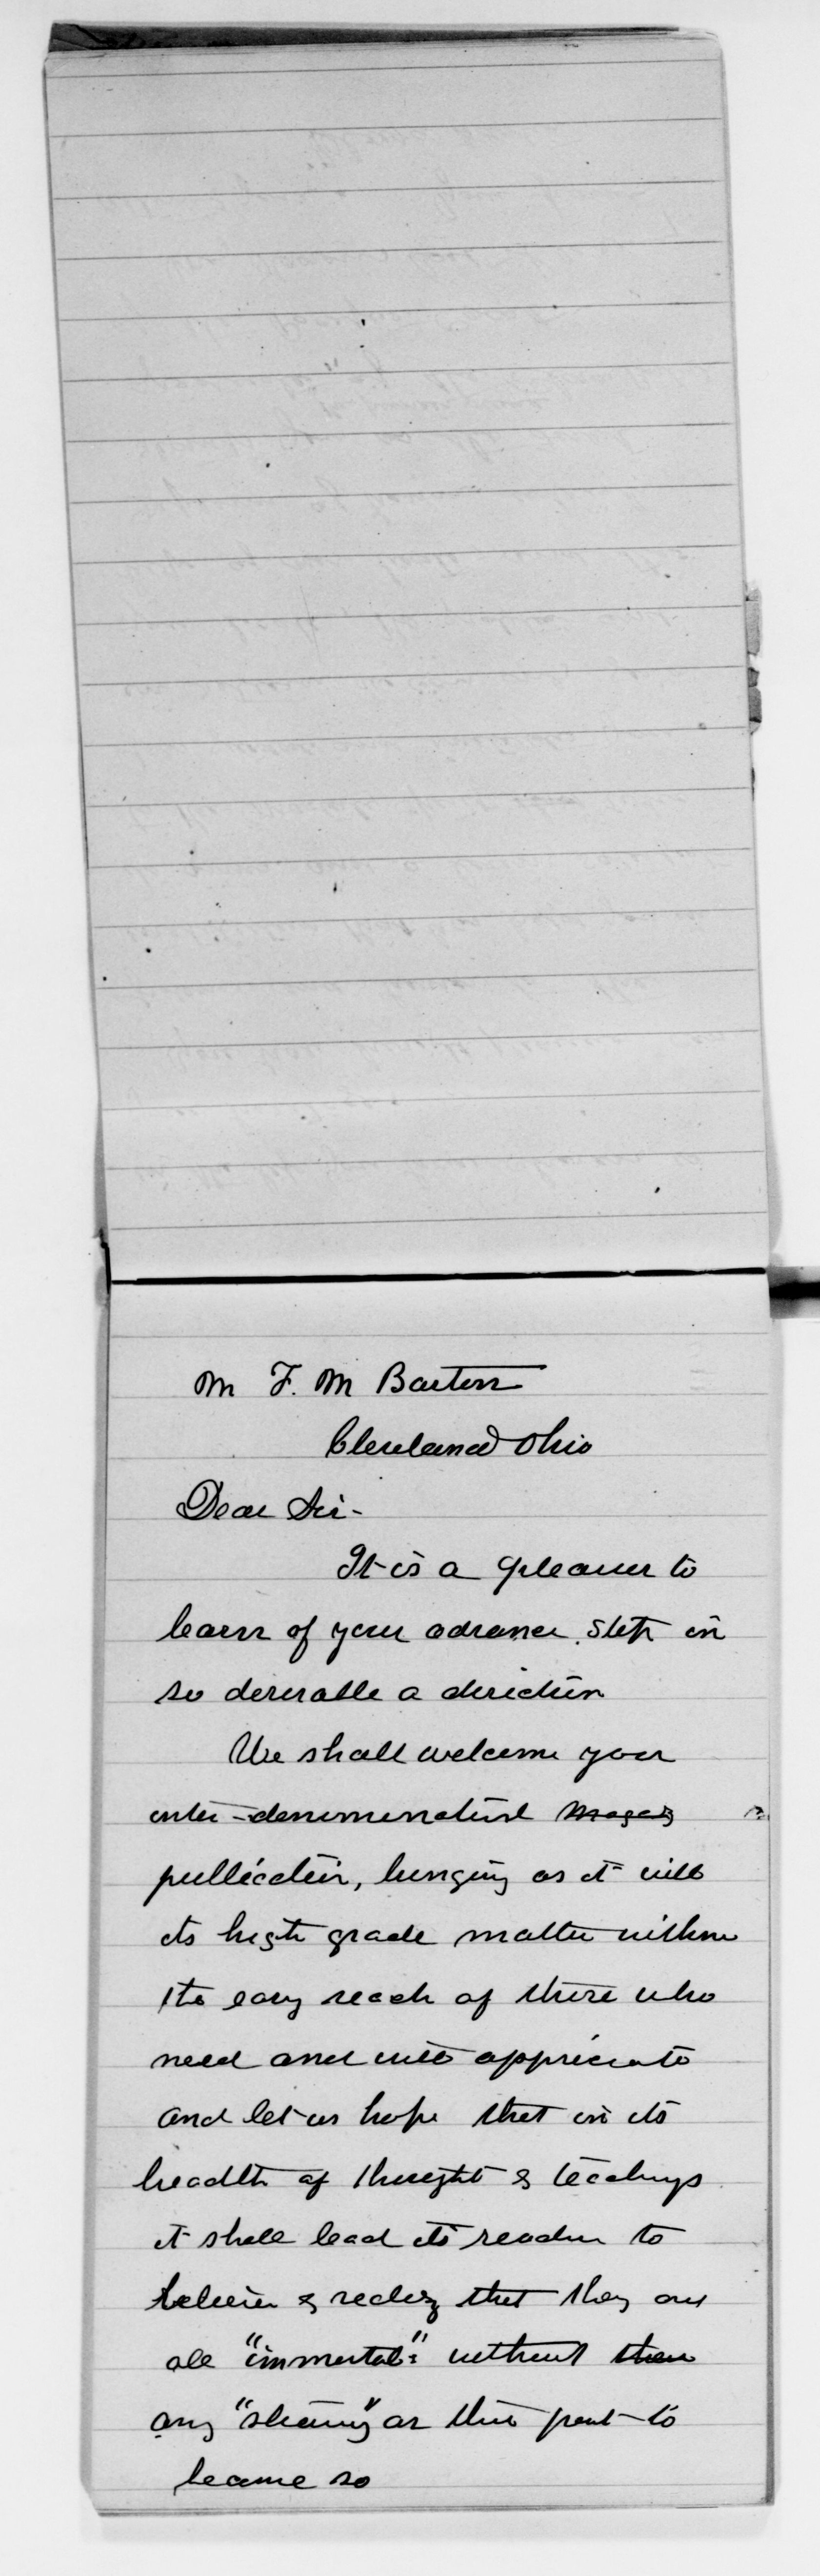 Mr F. M Barton
Cleveland Ohio
Dear Sir-
It is a pleasure to
learn of your advance step in
so desirable a direction
We shall welcome your
inter-denominational Magaz
publication, bringing as it will
its high grade matter within
the easy reach of those who
need and will appreciate
and let us hope that in its
breadth of thought & teachings
it shall lead its reader to
believe & realize that they are
all "immortal" without them
any "striving" on their part to
become so